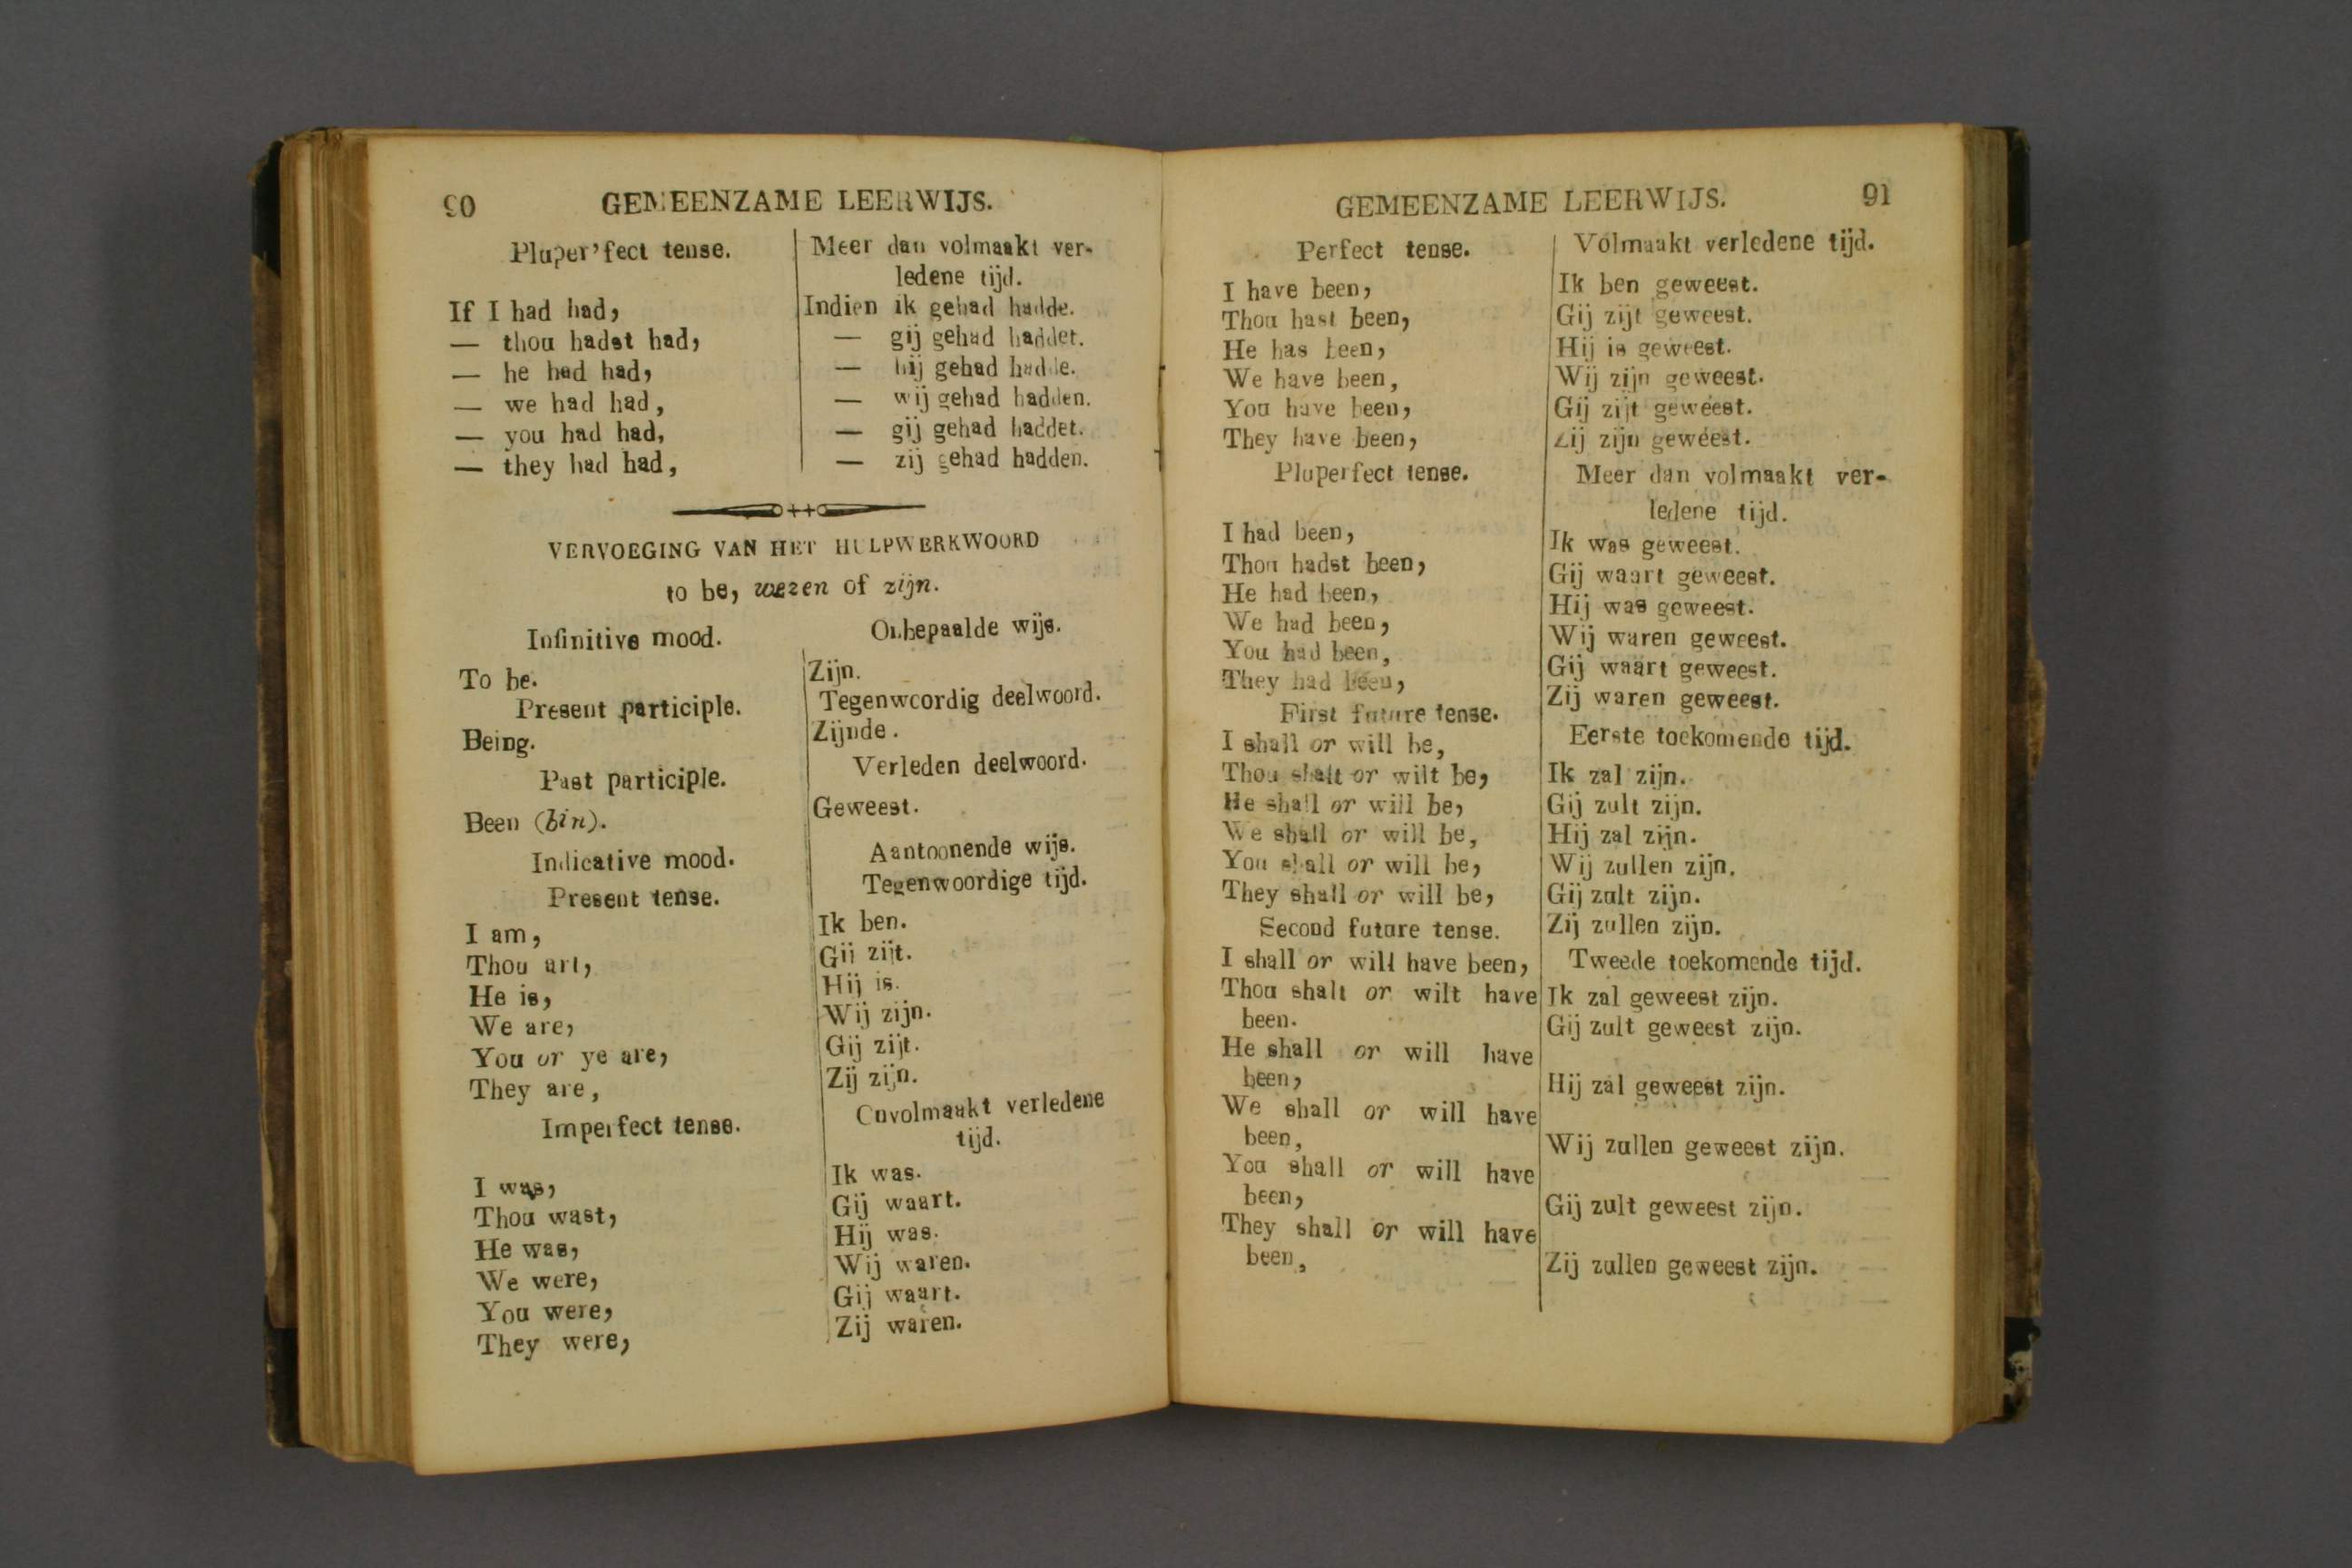 90 GEMEENZAME LEERWIJS.
Pluper'fect tense.
If I had had,
— thou hadst had,
— he had had,
— we had had,
— you had had,
— they had had,
Meer dan volmaakt ver-
ledene tijd.
Indien ik gehad hadde.
— gij gehad haddet.
— hij gehad hadde.
— wij gehad hadden.
— gij gehad haddet.
— zij gehad hadden.
VERVOEGING VAN HET HULPWERKWOORD
to be, wezen of zijn.
Infinitive mood.
To be.
Present participle.
Being.
Past participle.
Been (bin).
Indicative mood.
Present tense.
I am,
Thou art,
He is,
We are,
You or ye are,
They are,
Imperfect tense.
I was,
Thou wast,
He was,
We were,
You were,
They were,
Onbepaalde wijs.
Zijn.
Tegenwoordig deelwoord.
Zijnde.
Verleden deelwoord.
Geweest.
Aantoonende wijs.
Tegenwoordige tijd.
Ik ben.
Gij zijt.
Hij is.
Wij zijn.
Gij zijt.
Zij zijn.
Onvolmaakt verledene
tijd.
Ik was.
Gij waart.
Hij was.
Wij waren.
Gij waart.
Zij waren.
GEMEENZAME LEERWIJS. 91
Perfect tense.
I have been,
Thou hast been,
He has been,
We have been,
You have been,
They have been,
Pluperfect tense.
I had been,
Thou hadst been,
He had been,
We had been,
You had been,
They had been,
First future tense.
I shall or will be,
Thou shalt or wilt be,
He shall or will be,
We shall or will be,
You shall or will be,
They shall or will be,
Second future tense.
I shall or will have been,
Thou shalt or wilt have
been.
He shall or will have
been,
We shall or will have
been,
You shall or will have
been,
They shall or will have
been,
Volmaakt verledene tijd.
Ik ben geweest.
Gij zijt geweest.
Hij is geweest.
Wij zijn geweest.
Gij zijt geweest.
Zij zijn geweest.
Meer dan volmaakt ver-
ledene tijd.
Ik was geweest.
Gij waart geweest.
Hij was geweest.
Wij waren geweest.
Gij waart geweest.
Zij waren geweest.
Eerste toekomende tijd.
Ik zal zijn.
Gij zult zijn.
Hij zal zijn.
Wij zullen zijn.
Gij zult zijn.
Zij zullen zijn.
Tweede toekomende tijd.
Ik zal geweest zijn.
Gij zult geweest zijn.
Hij zal geweest zijn.
Wij zullen geweest zijn.
Gij zult geweest zijn.
Zij zullen geweest zijn.